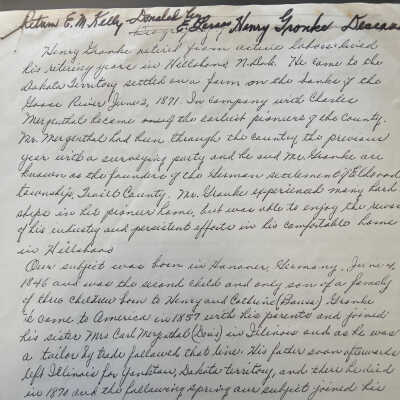 Return E. M. Kelly Donated by Henry Gronke Deceased
Henry Gronke retired from active labors lived
his retiring years in Hillsboro N. Dak. He came to the
Dakota Territory settled on a farm on the banks of the
Goose River June 2, 1871. In company with Charles
Mergenthal became among the earliest pioneers of the County.
Mr. Mergenthal had been through the country the previous
year with a surveying party and he and Mr. Gronke are
known as the founders of the German settlement of Eldorado
township, Traill County. Mr. Gronke experienced many hard
ships in his pioneer home, but was able to enjoy the reward
of his industry and persistent efforts in his comfortable home
in Hillsboro
Our subject was born in Hanover, Germany, June 4,
1846 and was the second child and only son of a family
of three children born to Henry and Cathrine Gronke
& came to America in 1857 with his parents and joined
his sister Mrs Carl Mergethal in Illinois and as he was
a tailor by trade followed that line. His father soon afterwards
left Illinois for Yankton, Dakota territory, and there he died
in 1870 and the following spring our subject joined his